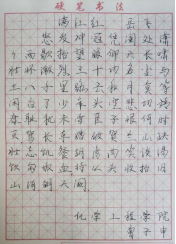 硬笔书法
满江红 岳飞
怒发冲冠凭阑处潇
潇雨歇抬望眼仰天长啸
壮怀激烈三十功名尘与
土八千里路云和月莫等
闲白了少年头空悲切靖
康耻犹未雪臣子恨何时
灭驾长车踏破贺兰山缺
壮志饥餐胡虏肉笑谈渴
饮匈奴血待从头收拾旧
山河朝天阙
工程学院